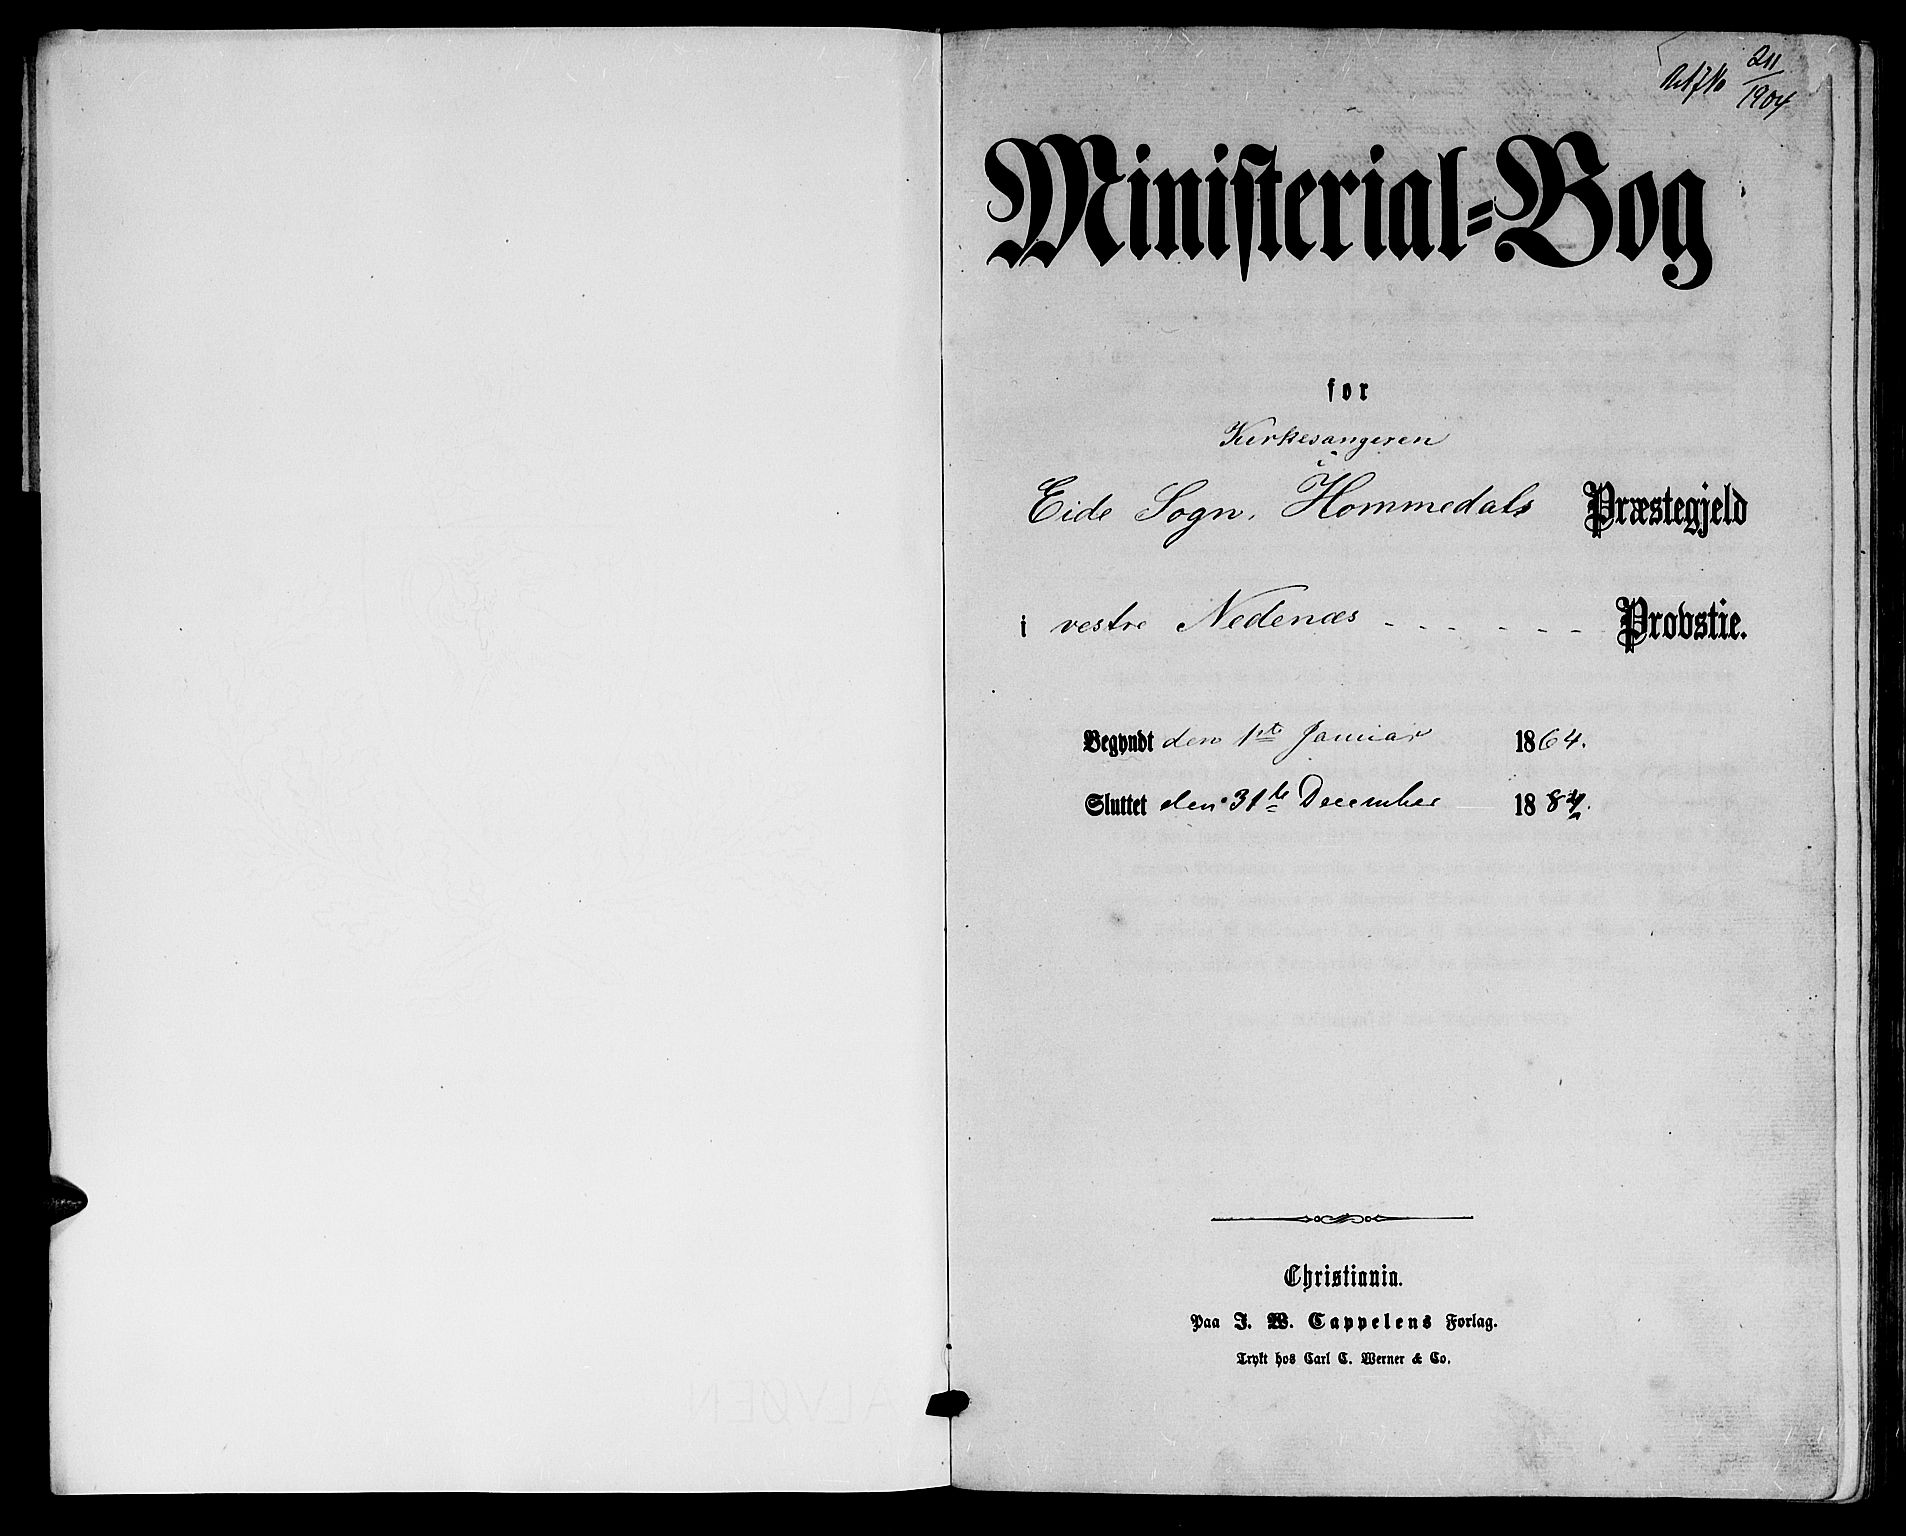 211
1904
Ministerial-Bog
for
Kirkesangeren
i
Eide Sogn, Hommedals Præstegjeld
i vestre Nedenæs - - - - - - - Provstie.
Begyndt den 1ste Januar 1864.
Sluttet den 31te December 188
Christiania.
Paa J. W. Cappelens Forlag.
Trykt hos Carl C. Werner & Co.
ALVØEN